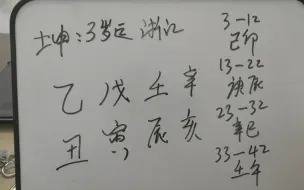 坤:3岁运 浙江
乙 戊 壬 辛
丑 寅 辰 亥
3-12
己卯
13-22
庚辰
23-32
辛巳
33-42
壬午